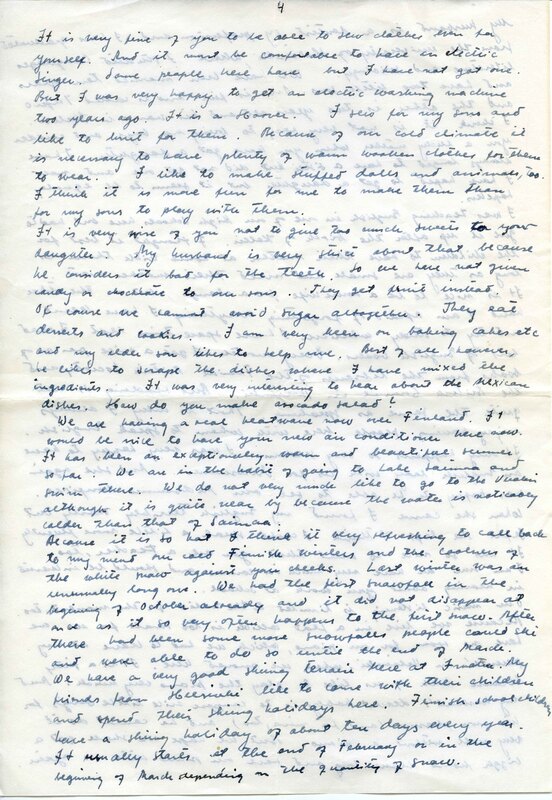 4
It is very fine of you to be able to sew clothes even for
yourself. And it must be comfortable to have an electric
Singer. Some people here have but I have not got one.
But I was very happy to get an electric washing machine
two years ago. It is a Hoover. I sew for my sons and
like to knit for them. Because of our cold climate it
is necessary to have plenty of warm woollen clothes for them
to wear. I like to make stuffed dolls and animals, too.
I think it is more fun for me to make them than
for my sons to play with them.
It is very wise of you not to give too much sweets to your
daughter. My husband is very strict about that because
he considers it bad for the teeth. So we have not given
candy or chocolate to our sons. They get fruit instead.
Of course we cannot avoid sugar altogether. They eat
desserts and cookies. I am very keen on baking cakes etc
and my elder son likes to help me. Best of all, however,
he likes to scrape the dishes where I have mixed the
ingredients. It was very interesting to hear about the Mexican
dishes. How do you make avocado salad?
We are having a real heatwave now over Finland. It
would be nice to have your new air conditioner here now.
It has been an exceptionally warm and beautiful summer
so far. We are in the habit of going to Lake Saimaa and
swim there. We do not very much like to go to the Vuoksi
although it is quite near by because the water is noticably
colder than that of Saimaa.
Because it is so hot I think it very refreshing to call back
to my mind our cold Finnish winters and the coolness of
the white snow against your cheeks. Last winter was an
unusually long one. We had the first snowfall in the
beginning of October already and it did not disappear at
once as it so very often happens to the first snow. After
there had been some more snowfalls people could ski
and were able to do so until the end of March.
We have a very good skiing terrain here at Imatra. My
friends from Helsinki like to come with their children
and spend their skiing holidays here. Finnish school children
have a skiing holiday of about ten days every year.
It usually starts at the end of February or in the
beginning of March depending on the quantity of snow.